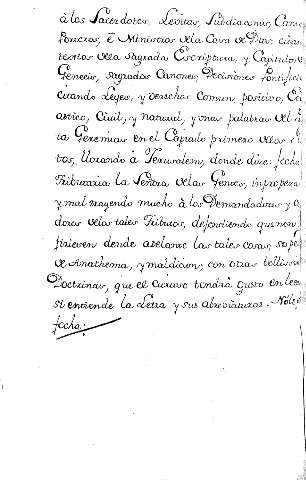 à los Sacerdotes, Levitas, Subdiaconos, Cano
fonezas, è Ministros dela Cava de Dios: citan
textos dela Sagrada Escriptura, y Capitulos d
Genesis, Sagrados Canones, Decisiones Pontificia
citando Leyes, y derechos comun, positivo, Ca
nonico, Civil, y natural, y unas palabras del
ta Geremias en el Capitulo primero delas
tos, llorando à Jerusalem, donde dice: fecha
Tributaria la Señora delas Gentes, impropera
y mal trayendo mucho à los Demandadores y
dores delos tales Tributos, defendiendo que non
ficiesen dende adelante las tales cosas, so pe
de Anathema, y maldicion, con otras bellissi
Doctrinas, que el curioso tendrà gusto en lee
si entiende la Letra y sus abreviaturas.
fecha: